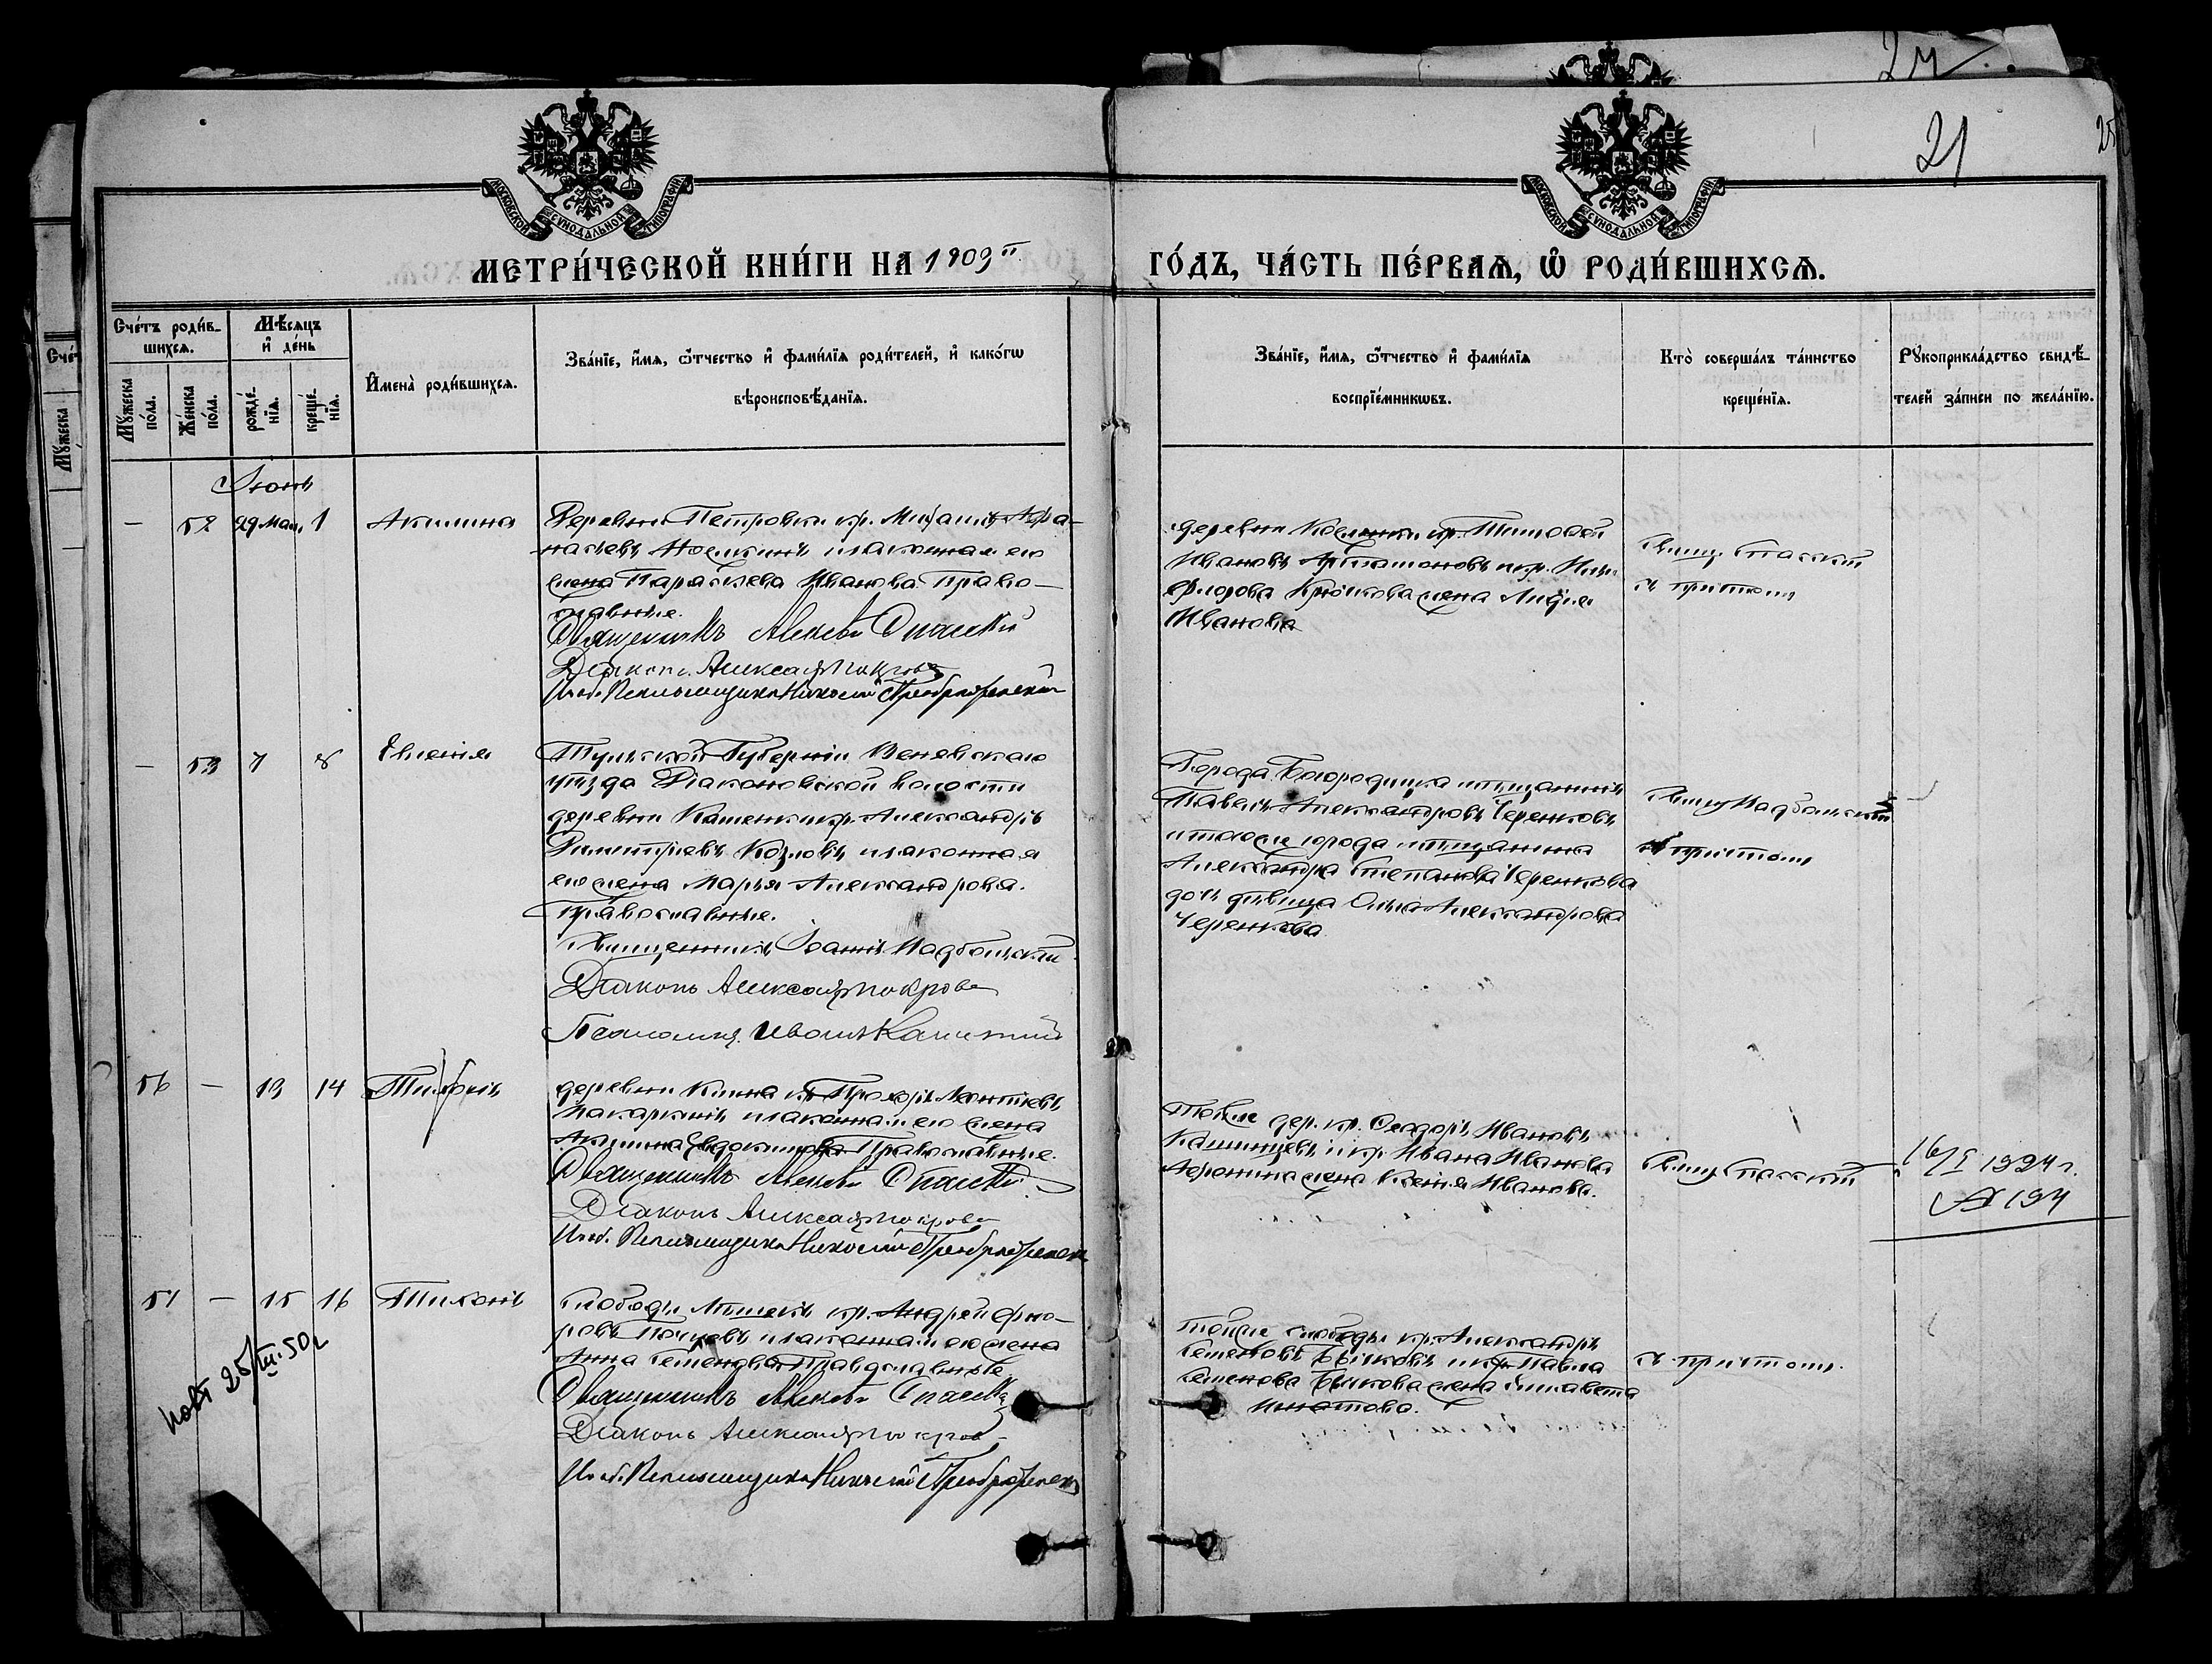 24
21
25
МОСКОВСКОЙ СѴНОДАЛЬНОЙ ТИПОГРАФІИ
МОСКОВСКОЙ СѴНОДАЛЬНОЙ ТИПОГРАФІИ
МЕТРИ́ЧЕСКОЙ КНИ́ГИ НА 1909
ГО́ДЪ, ЧА́СТЬ ПЕ́РВАѦ, Ѡ҆ РОДИ́ВШИХСѦ.
Сче́тъ роди́в-
шихсѧ.
Мꙋжеска по́ла.
Же́нска по́ла.
Мѣ́сѧцъ
и҆ де́нь
рожде́-нїѧ.
креще́-нїѧ.
И҆мена̀ роди́вшихсѧ.
Зва́нїе, и҆́мѧ, ѻ҆́тчество и҆ фами́лїѧ роди́телей, и҆ како́гѡ
вѣроисповѣ́данїѧ.
Зва́нїе, и҆́мѧ, ѻ҆́тчество и҆ фами́лїѧ
воспрїе́мникѡвъ.
Кто̀ соверша́лъ та́инство
креще́нїѧ.
Рꙋкоприкла́дство свидѣ́-
телей за́писи по жела́нїю.
Іюнь
— 52 29 Мая 1 Акилина
Деревни Петровки кр. Михаилъ Афа-
насьевъ и законная его
жена Параскева Иванова. Право-
славные.
Священникъ Алексѣй Спасскій
Діаконъ Александръ Покровъ
И. об. Псаломщика Николай Преображенскій
деревни кр. Тимофей
Ивановъ Артамоновъ и кр.
Фролова Крюкова жена Лидія
Иванова
Свящ. Спасскій
съ причтомъ
— 53 7 8 Евгенія
Тульской Губерніи Веневскаго
уѣзда Діаконовской волости
деревни Каменки кр. Александръ
Димитріевъ Козловъ и законная
его жена Марья Александрова.
Православные.
Священникъ Іоаннъ Надбольскій
Діаконъ Александръ Покровъ
Псаломщ. Иванъ
Города Богородицка мѣщанинъ
Павелъ Александровъ Черенковъ
и того же города мѣщанина
Александра Степанова Черенкова
дочь дѣвица Ольга Александрова
Черенкова
Свящ. Надбольскій
съ причтомъ
56 — 13 14 Тихонъ
деревни Кт. Прохоръ Леонтьевъ
Макаркинъ и законная его жена
Акилина Евдокимова Православные.
Священникъ Алексѣй Спасскій
Діаконъ Александръ Покровъ
И. об. Псаломщика Николай Преображенск
Той же дер. кр. Ѳеодоръ Ивановъ
Кашинцевъ и кр. Ивана Иванова
Аѳонина жена Ксенія Иванова.
Свящ. Спасскій
16/I 1924 г.
№ 194
57 — 15 16 Тихонъ
Слободы кр. Андрей Фро-
ловъ и законная его жена
Анна Семенова Православные
Священникъ Алексѣй Спасскі
Діаконъ Александръ Покров
И. об. Псаломщика Николай Преображенск
той же слободы кр. Александръ
Семеновъ Бычковъ и кр. Павла
Семенова Бычкова жена Елисавета
Игнатова.
съ причтомъ.
повт 25/III.50г